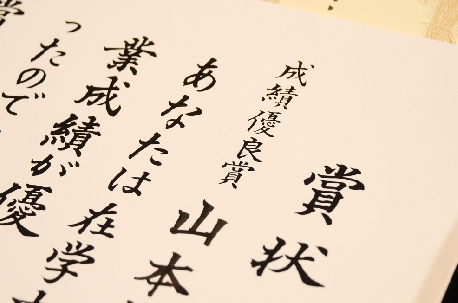 賞状
成績優良賞
山本
あなたは在学
業成績が優
ったので
賞